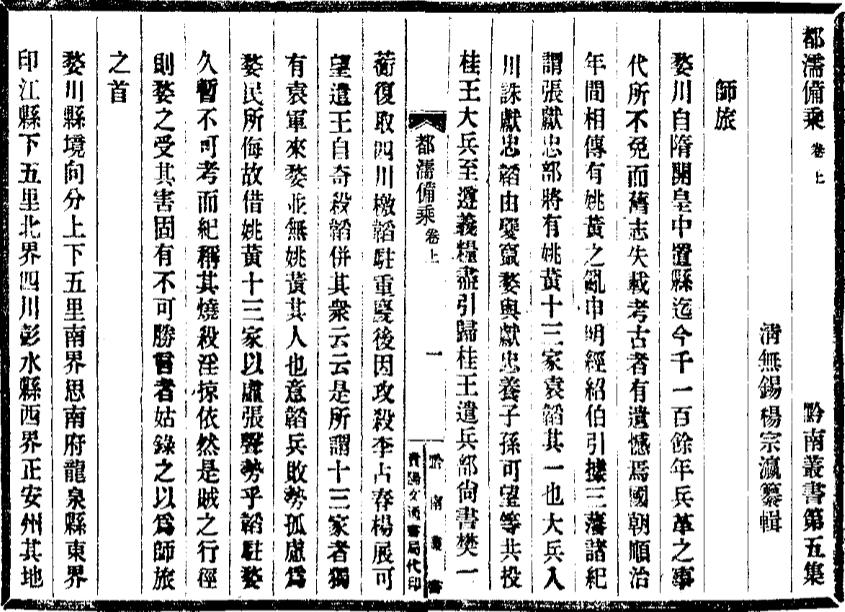 都濡備乘 卷上 黔南叢書第五集
清無錫楊宗瀛纂輯
師旅
婺川自隋開皇中置縣迄今千一百餘年兵革之事
代所不免而舊志失載考古者有遺憾焉國朝順治
年間相傳有姚黃之亂申明經紹伯引據三藩諸紀
謂張獻忠部將有姚黃十三家袁韜其一也大兵入
川誅獻忠韜由夔竄婺與獻忠養子孫可望等共投
桂王大兵至遵義糧盡引歸桂王遣兵部尚書樊一
都濡備乘 卷上 一 黔南叢書
貴陽文通書局代印
蘅復取四川檄韜駐重慶後因攻殺李占春楊展可
望遣王自奇殺韜併其衆云云是所謂十三家者獨
有袁軍來婺並無姚黃其人也意韜兵敗勢孤慮爲
婺民所侮故借姚黃十三家以虛張聲勢乎韜駐婺
久暫不可考而紀稱其燒殺淫掠依然是賊之行徑
則婺之受其害固有不可勝言者姑錄之以爲師旅
之首
婺川縣境向分上下五里南界思南府龍泉縣東界
印江縣下五里北界四川彭水縣西界正安州其地